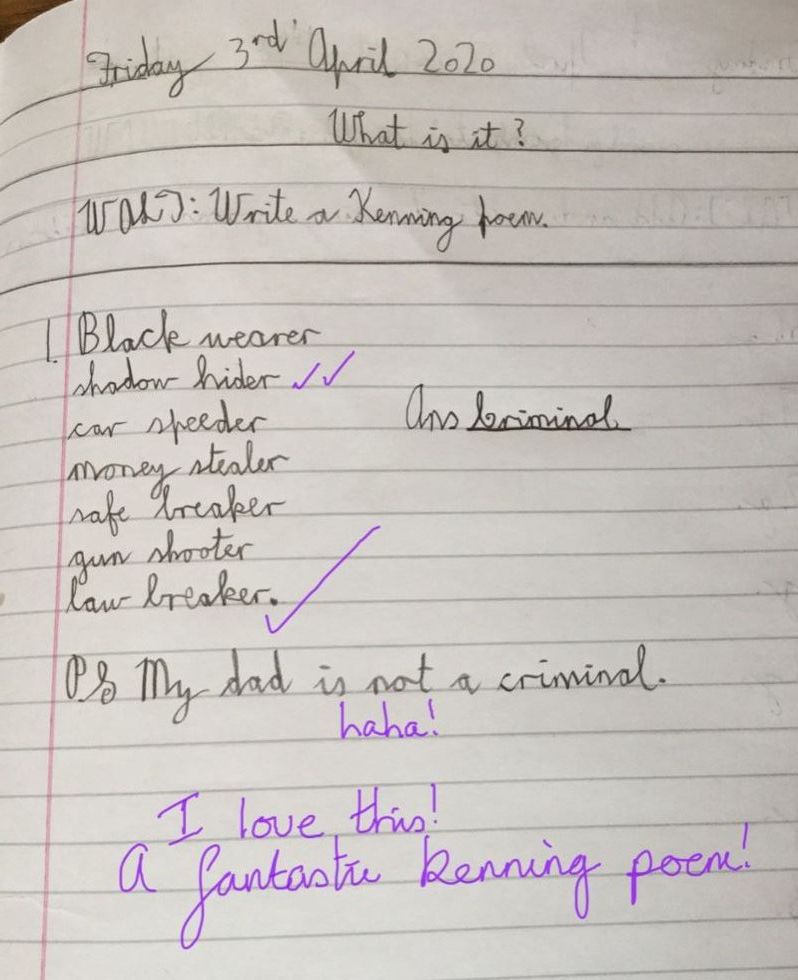 Friday 3rd April 2020
What is it?
WALT: Write a Kenning poem.
1. Black wearer
shadow hider
car speeder
Ans Criminal
money stealer
safe breaker
gun shooter
law breaker.
PS My dad is not a criminal.
haha!
I love this!
A fantastic kenning poem!